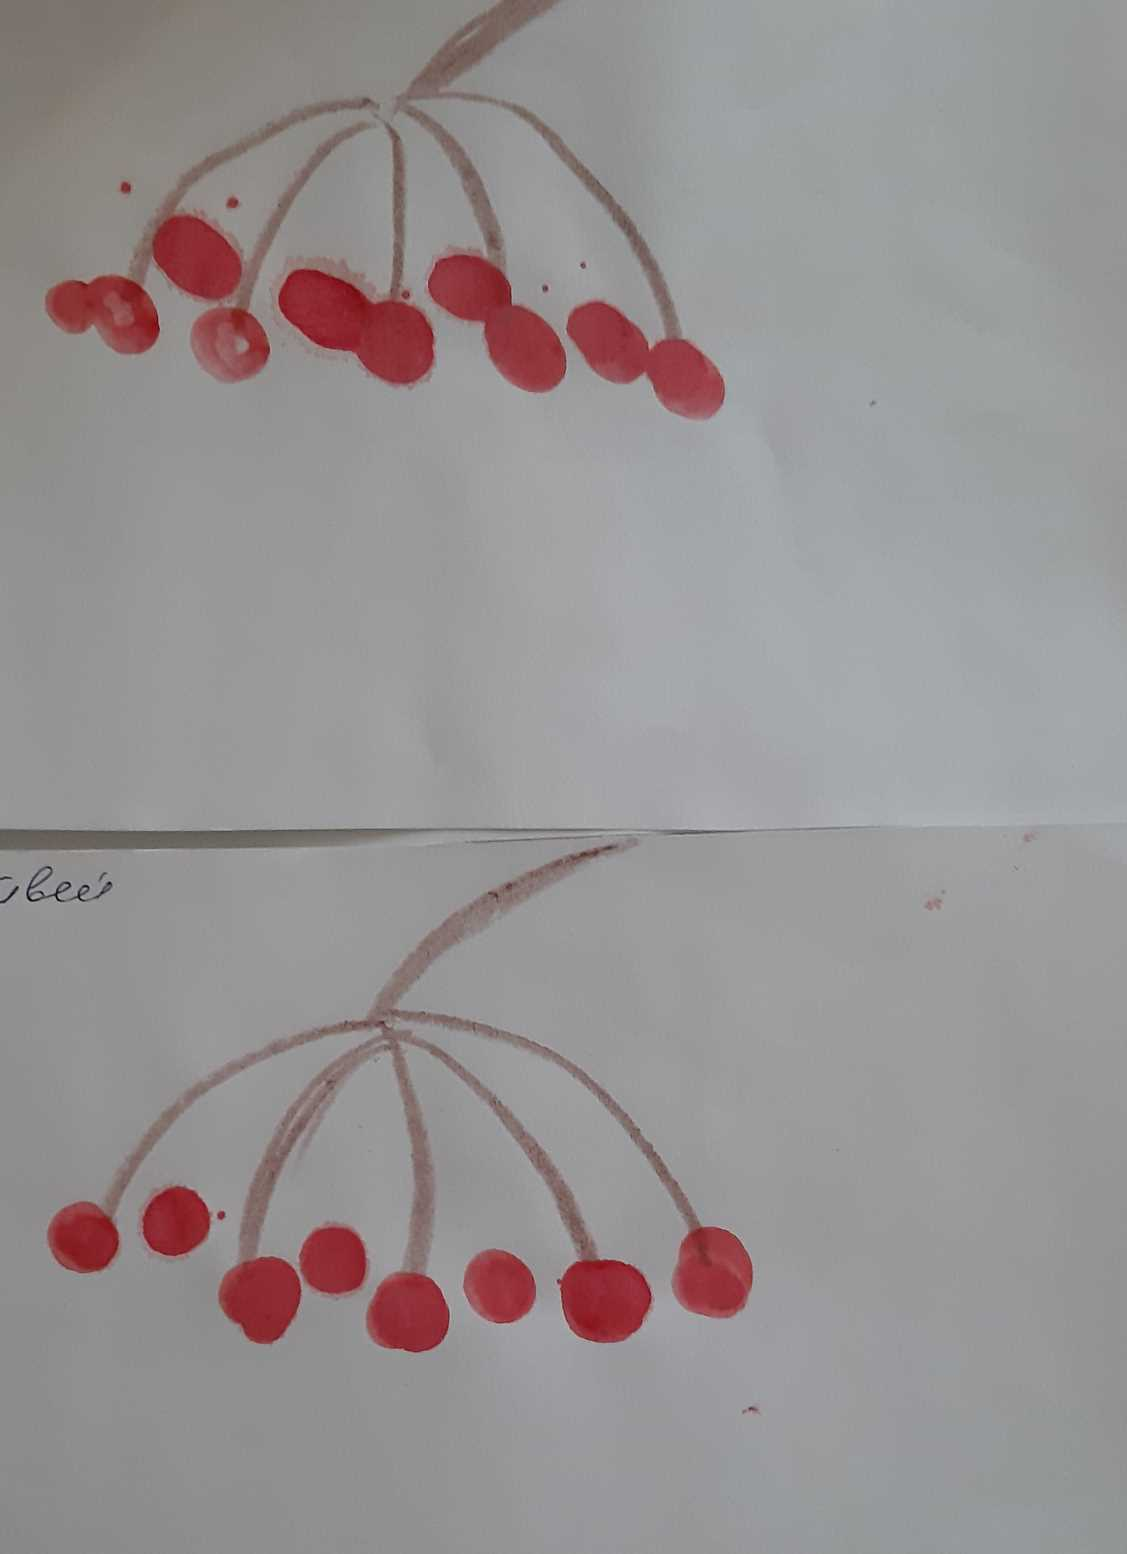 вей